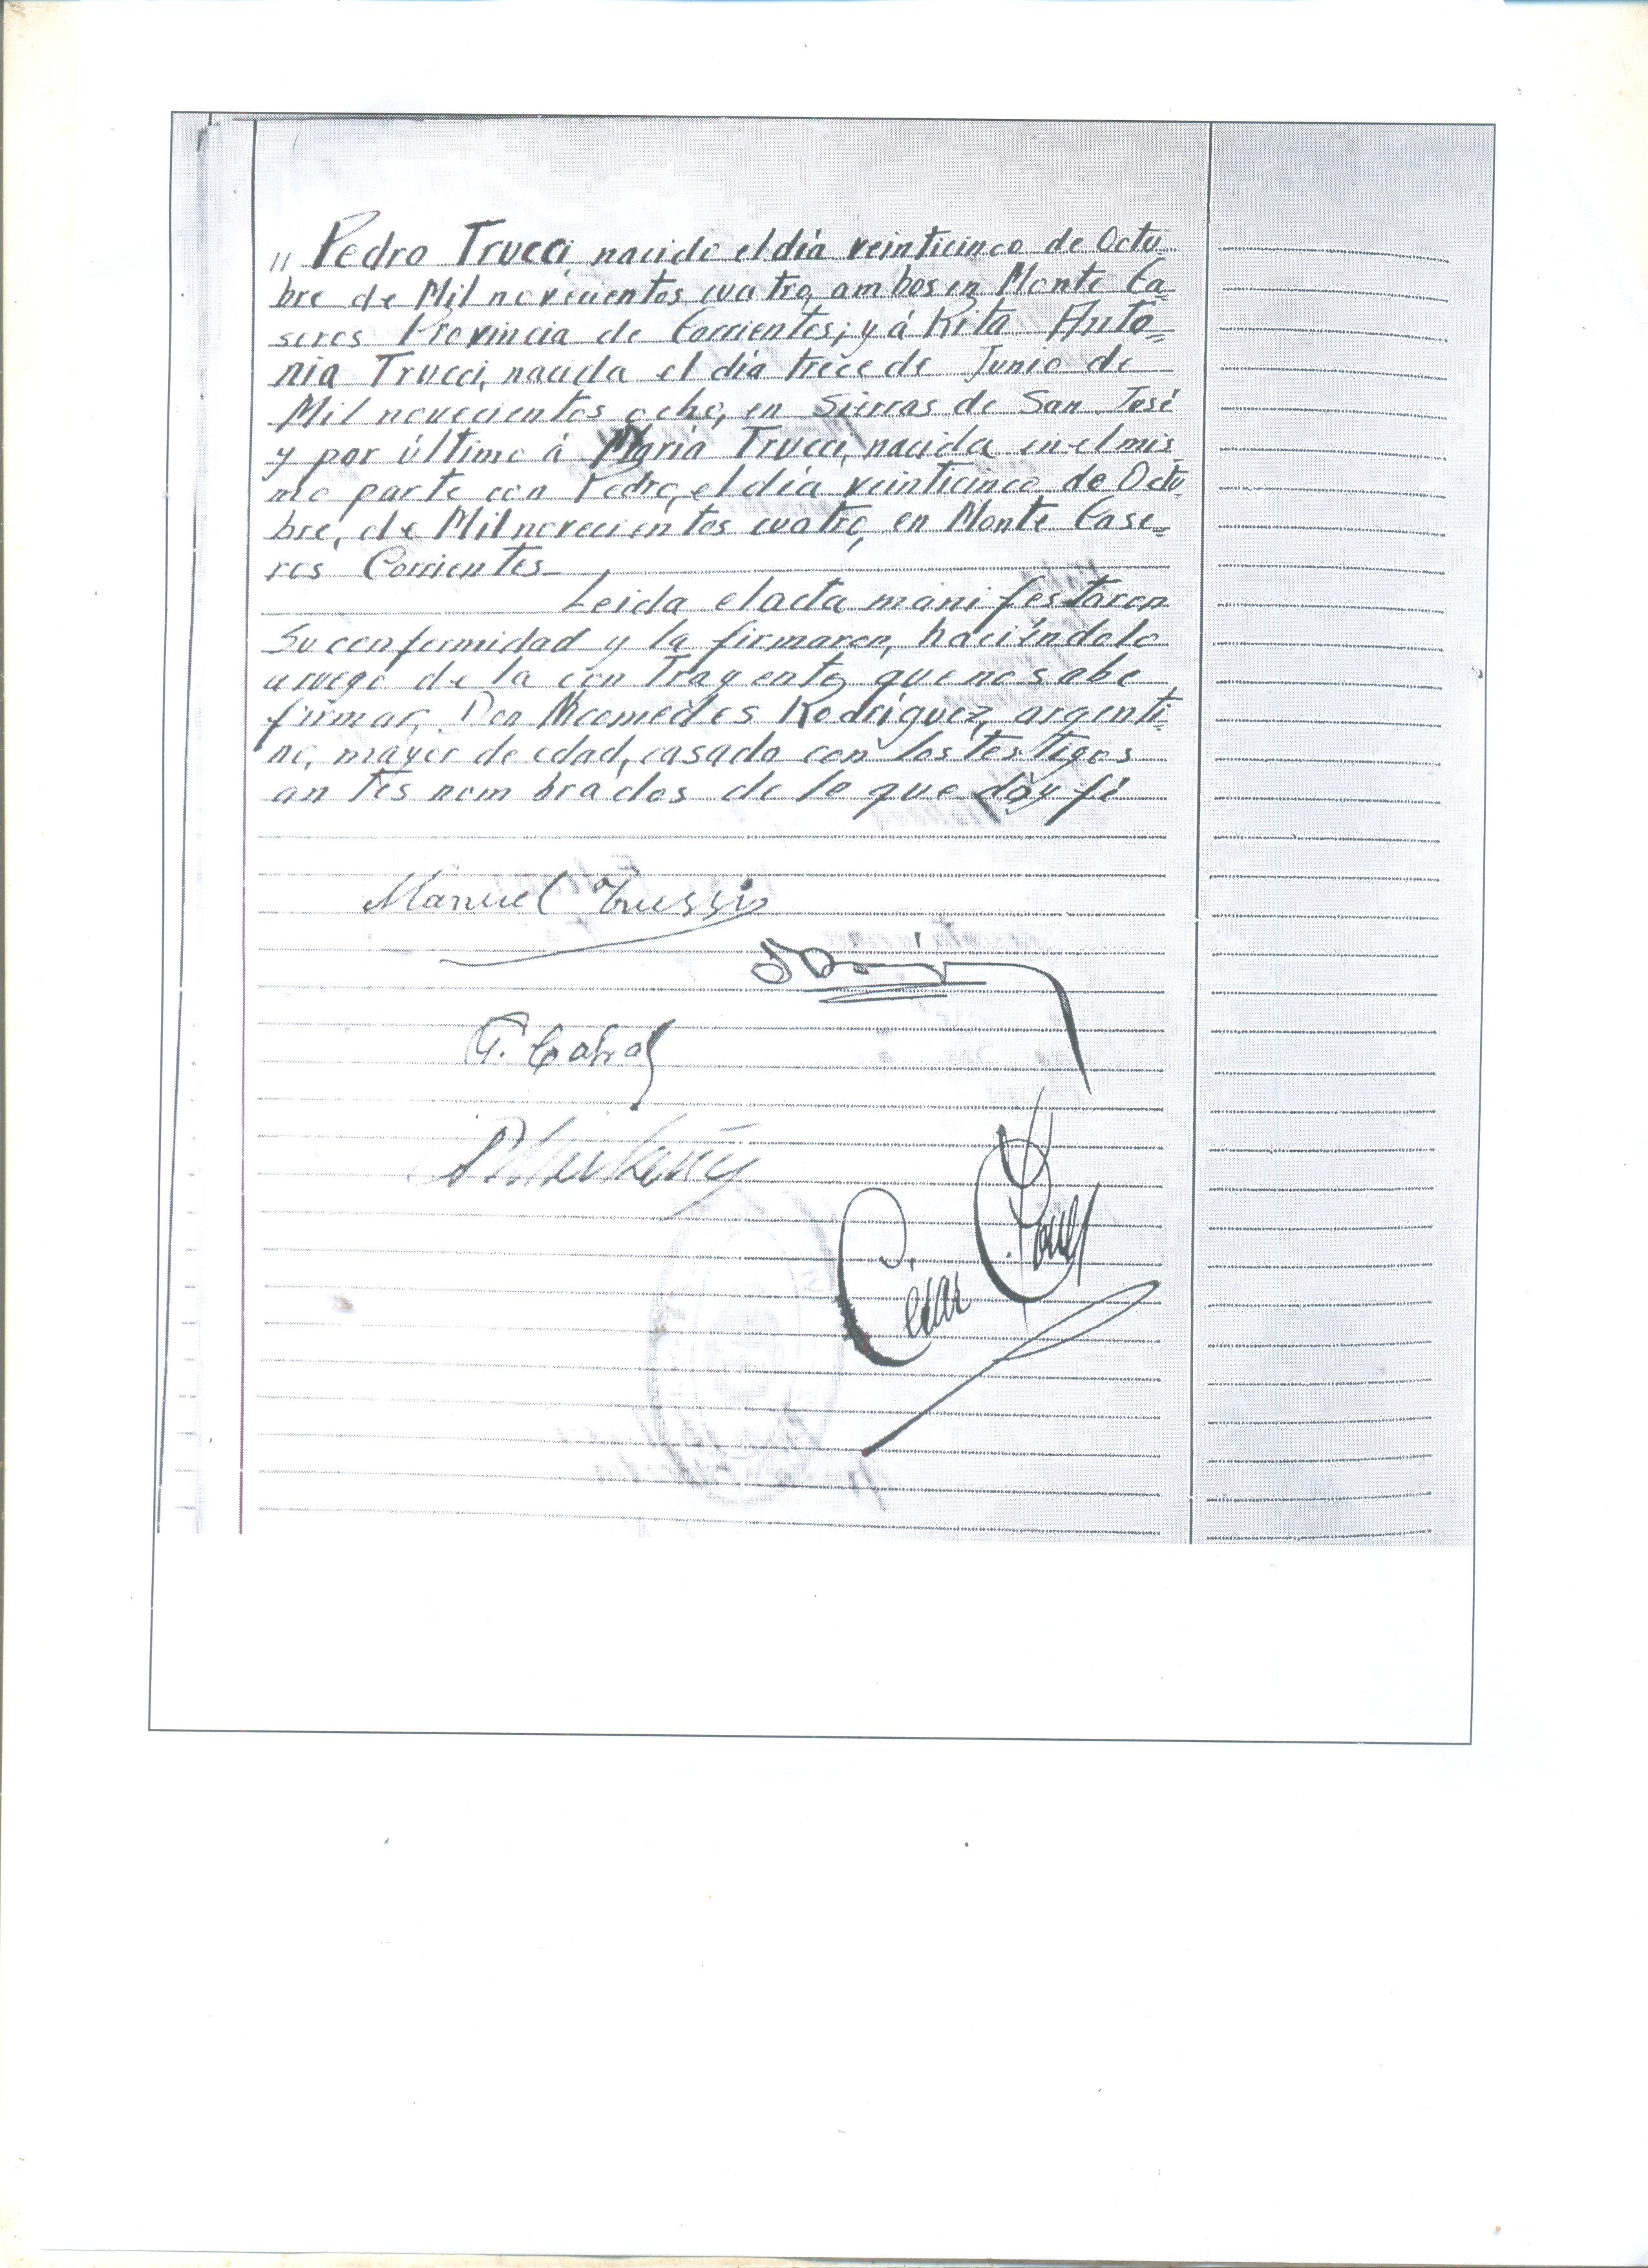 " Pedro Trucci, nacido el día veinticinco de Octu=
bre de Mil novecientos cuatro, ambos en Monte Ca=
seros Provincia de Corrientes; y á Rita Anto=
nia Trucci, nacida el día trece de Junio de
Mil novecientos ocho, en Sierras de San José
y por último á María Trucci, nacida en el mis=
mo parto con Pedro, el día veinticinco de Octu=
bre, de Mil novecientos cuatro, en Monte Case=
ros Corrientes
Leida el acta manifestaron
su conformidad y la firmaron, haciéndolo
a ruego de la contrayente, que no sabe
firmar, Don Nicomedes Rodríguez, argenti=
no, mayor de edad, casado con los testigos
antes nombrados de lo que doy fé
Manuel Trussi
G. Cabral
Cesar